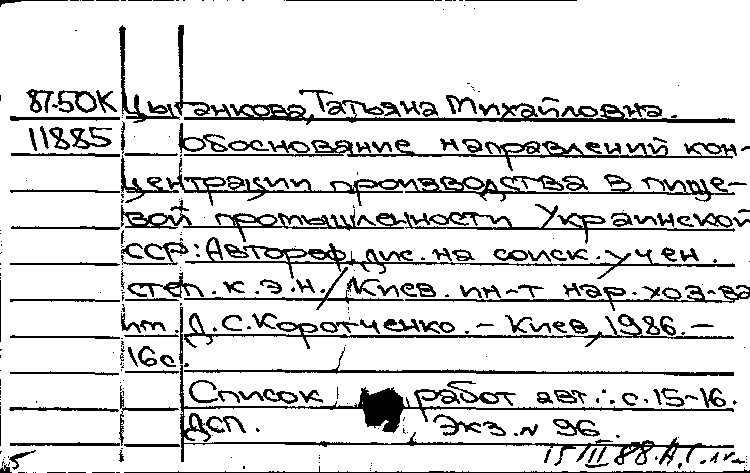 87-50К Цыганкова, Татьяна Михайловна.
11885 Обоснование направлений кон-
центрации производства в пище-
вой промышленности Украинской
ССР: Автореф. дис. на соиск. учен.
степ. к.э.н. / Киев. ин-т нар. хоз-ва
им. Д.С. Коротченко. - Киев, 1986. -
16 с.
Список работ авт.: с. 15-16.
ДСП. Экз. № 96.
15/II 88